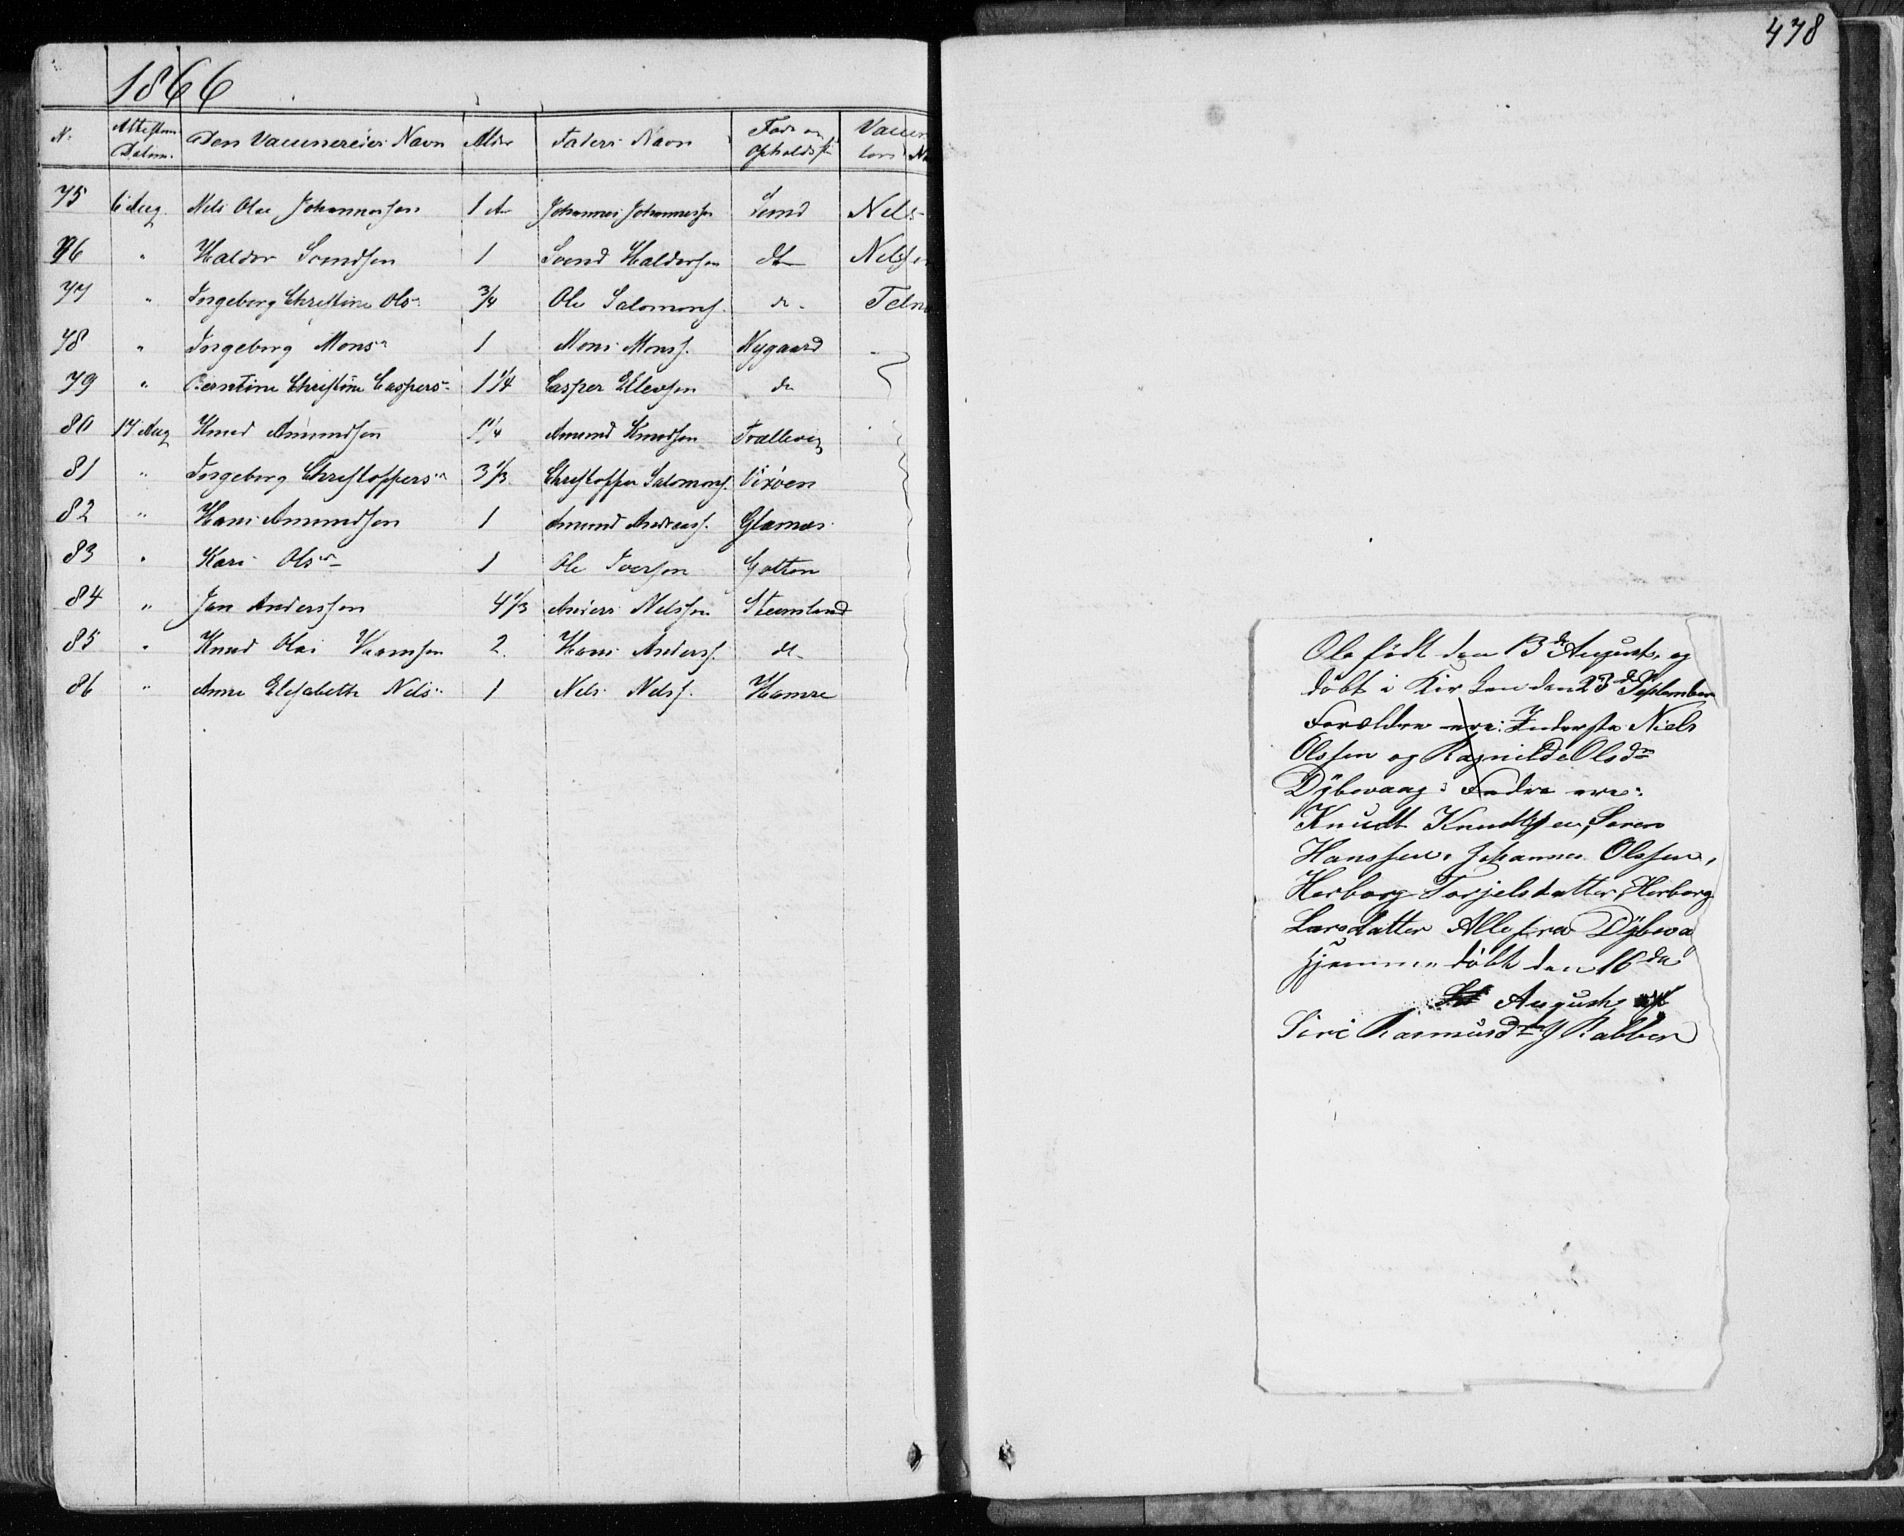 1866
N. Attestens Datum. Den Vaccineredes Navn Alder Faders Navn Føde og Opholdsst
75 6 Aug Nils Olai Johannessen 1 Aar Johannes Johannessen Lund Nels
76 " Haldor Svendsen 1 Svend Haldorsen do Nelsen
77 " Ingeborg Christine Olsdr 3/4 Ole Salomons. do
78 " Ingeborg Monsdr 1 Mons Monss. Nygaard
79 " Berntine Christine Caspersdr 1 1/4 Casper Ellevsen do
80 17 Aug Knud Amundsen 1 1/4 Amund Knudsen Trællevig
81 " Ingeborg Christoppersdr 3 1/3 Christopper Salomons. Vixøen
82 " Hans Amundsen 1 Amund Andreass. Glamnæs
83 " Kari Olsdr 1 Ole Iversen
84 " Jon Anderssen 4 1/3 Anders Nelssen Steensland
85 " Knud Olai Hansen 2 Hans Anderss. do
86 " Anne Elisabeth Nelsdr 1 Nels Nelss. Hamre
478
Ole født den 13de August og
döbt i Kirken den 23de September
Forældre ere: Inderste Niels
Olssen og Ragnilde Olsdr
Dÿbevaag: Fadre ere:
Knudt Knudtssen, Søren
Hanssen, Johannes Olssen,
Herborg Torjelsdatter, Herborg
Larsdatter Alle fra Dÿbevaa
Hjemme döbt den 16de
August af
Siri Rasmusdr Rabben